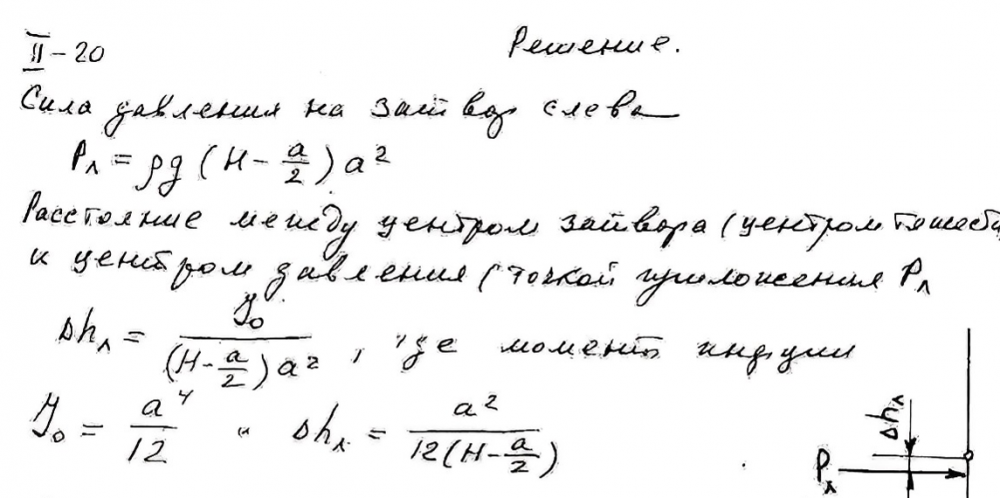 II-20 Решение.
Сила давления на затвор слева
Pл = ρg (H - a/2) a²
Расстояние между центром затвора (центром тяжести
и центром давления (точкой приложения Pл
Δhл = J₀ / ((H - a/2) a²), где момент индуции
J₀ = a⁴/12 и Δhл = a² / (12(H - a/2))
Δhл
Pл